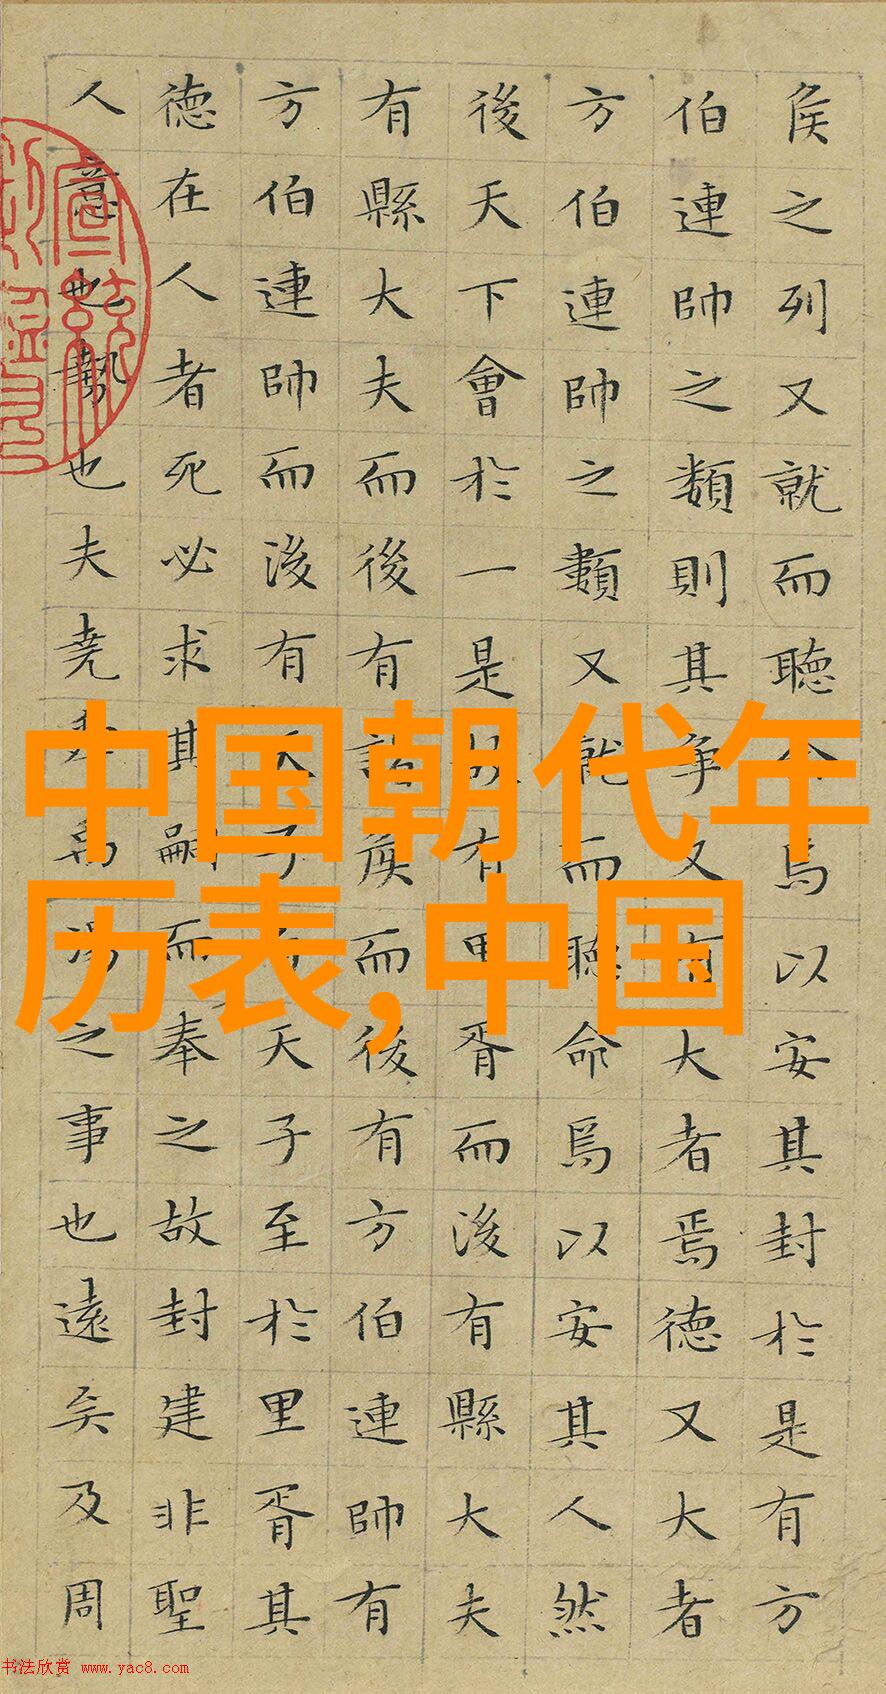 侯之列又就而聽命焉以安其封於是有方
伯連帥之類則其爭又有大者焉德又大者
方伯連帥之類又就而聽命焉以安其人然
後天下會於一是故有里胥而後有縣大夫
有縣大夫而後有諸侯而後有方伯連帥有
方伯連帥而後有天子自天子至於里胥其
德在人者死必求其嗣而奉之故封建非聖
人意也勢也夫堯舜禹湯之事也遠矣及周
中国朝代年
历表,中国
书法欣赏 www.yac8.com